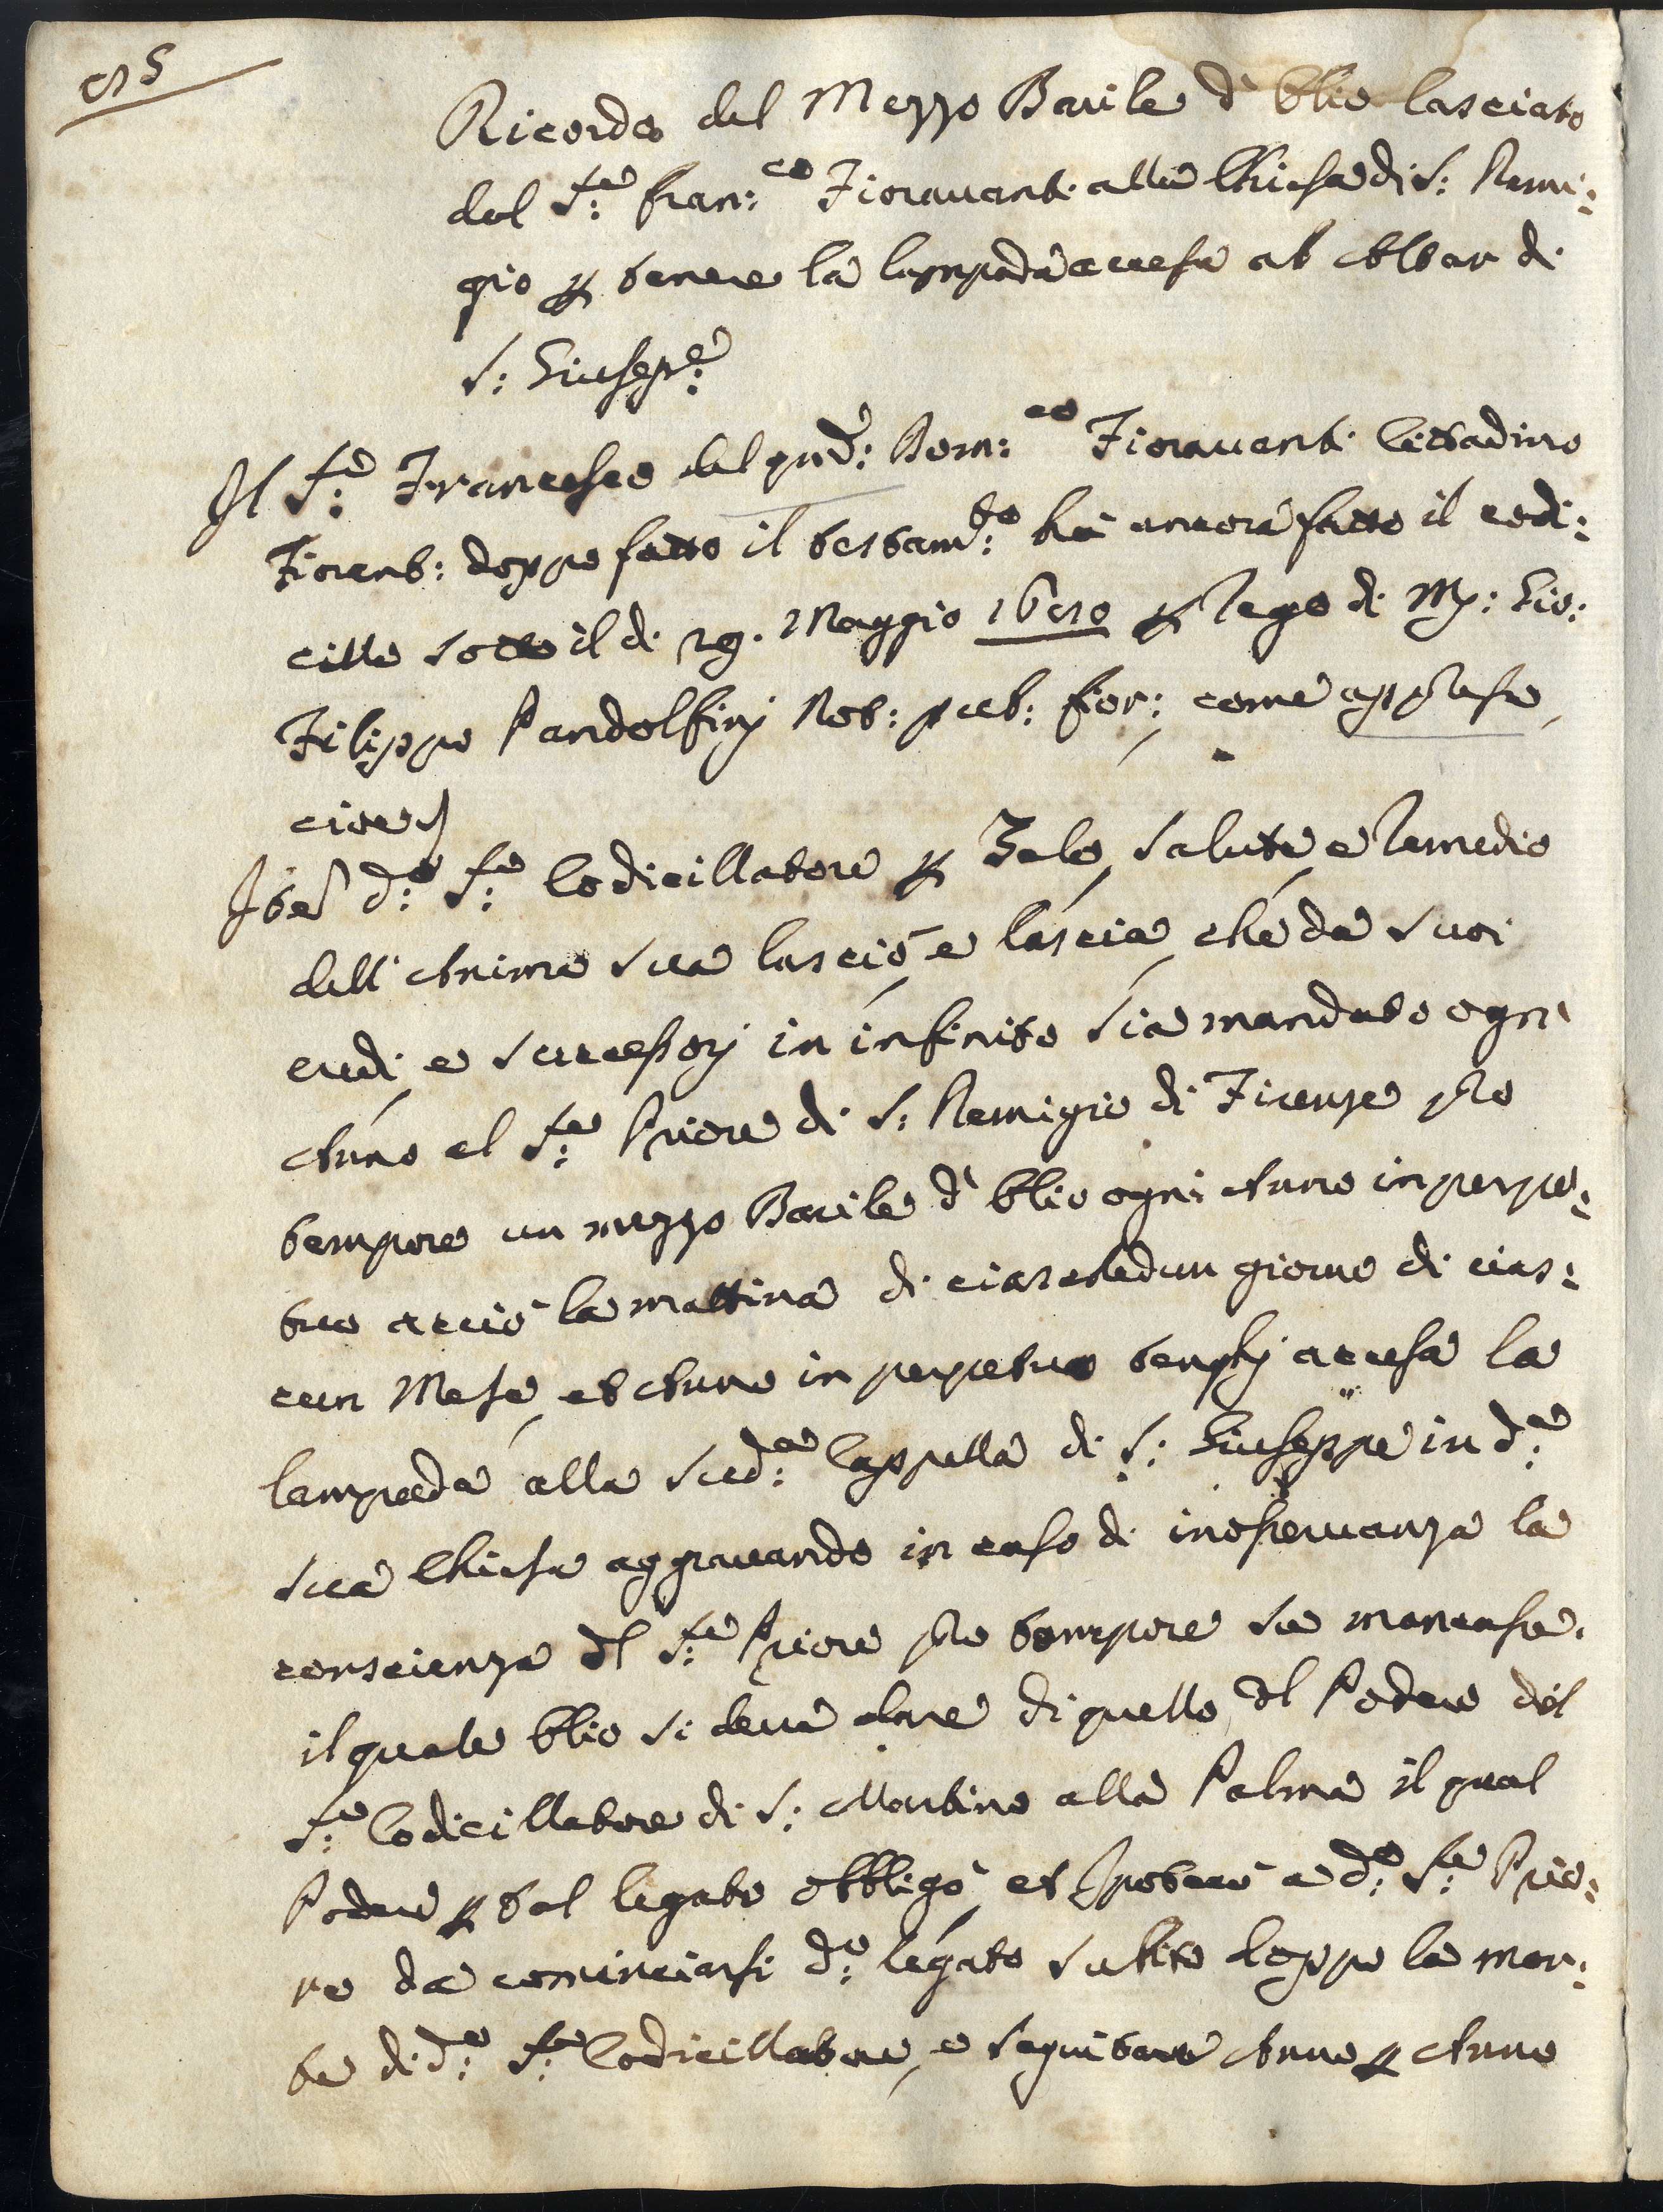 Ricordo del Mezzo Barile d' Olio lasciato
dal S.re Fran:co Fiorauanti alla Chiesa di S: Remi:
gio p tenere la lampada accesa at Altar di
S: Giusep.e
Il S.re Francesco del qud: Dom:co Fiorauanti Cittadino
Fiorent: doppo fatto il testam:to hà ancora fatto il codi:
cillo sotto il di 29. Maggio p rogo di M: Gio:
Filippo Pandolfinj Not: pub: fior: come app
cioe
Ite d:o S.re Codicillatore p Zelo, salute e remedio
dell' Anima sua lasciò, e lascia, ché da suoi
eredi e successorj in infinito sia mandato ogni
Anno al S.re Priore di S: Remigio di Firenze pro
tempore un mezzo Barile d' Olio ogni Anno in perpe:
tuo acciò la mattina di ciaschedun giorno di cias:
cun Mese, et Anno in perpetuo tenghj accesa la
lampada alla sud:a Cappella di S: Giuseppe in d:a
sua Chiesa aggrauando in caso di inosseruanza la
conscienza dl S.re Priore pro tempore se mancasse.
il quale Olio si deua dare di quello dl Podere del
S.re Codicillatore di S: Martino alla Palma il qual
Podere p tal legato obbligò, et Ipotecò a d:o S.re Prio:
re da cominciarsi d:o legato subito doppo la mor:
te di d:o S.re Codicillatore, e seguitare Anno p Anno